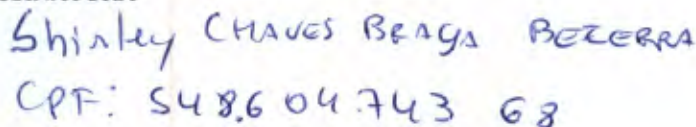 Shirley CHAVES BRAGA BEZERRA
CPF: 548.604.743 68